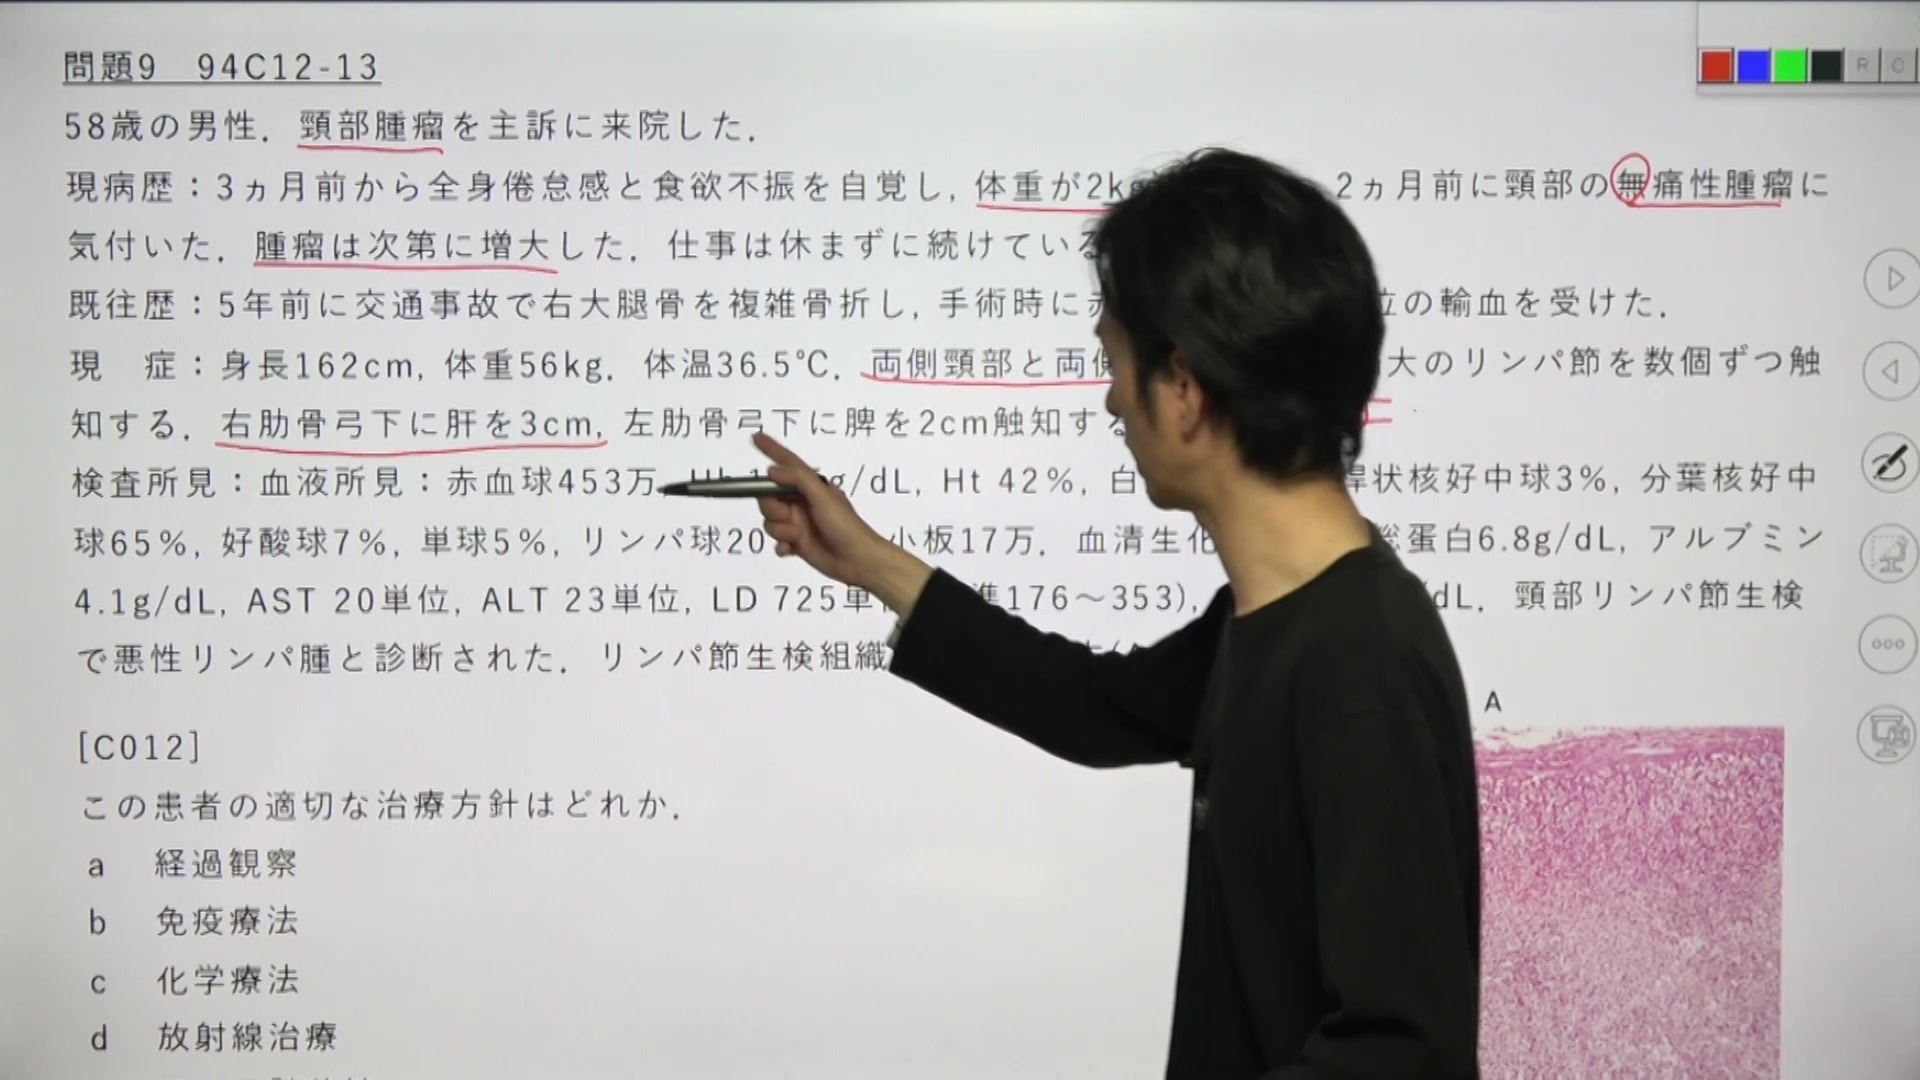 問題9 94C12-13
58歳の男性．頸部腫瘤を主訴に来院した．
現病歴：3ヵ月前から全身倦怠感と食欲不振を自覚し, 体重が2kg 2ヵ月前に頸部の無痛性腫瘤に
気付いた．腫瘤は次第に増大した．仕事は休まずに続けている
既往歴：5年前に交通事故で右大腿骨を複雑骨折し, 手術時に の輸血を受けた．
現 症：身長162cm, 体重56kg．体温36.5℃．両側頸部と両側 大のリンパ節を数個ずつ触
知する．右肋骨弓下に肝を3cm, 左肋骨弓下に脾を2cm触知する
検査所見：血液所見：赤血球453万, Hb g/dL, Ht 42%, 白 桿状核好中球3%, 分葉核好中
球65%, 好酸球7%, 単球5%, リンパ球20 小板17万．血清生化 総蛋白6.8g/dL, アルブミン
4.1g/dL, AST 20単位, ALT 23単位, LD 725単 準176〜353), dL．頸部リンパ節生検
で悪性リンパ腫と診断された．リンパ節生検組織
A
[C012]
この患者の適切な治療方針はどれか．
a 経過観察
b 免疫療法
c 化学療法
d 放射線治療
R